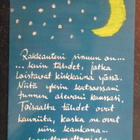 Rakkauteni sinuun on...
... kuin tähdet, jotka
loistavat kirkkaina yönä.
Niitä yksin katsoessani
tunnen olevani kanssasi.
Toisaalta tähdet ovat
kauniita, koska ne ovat
niin kaukana...